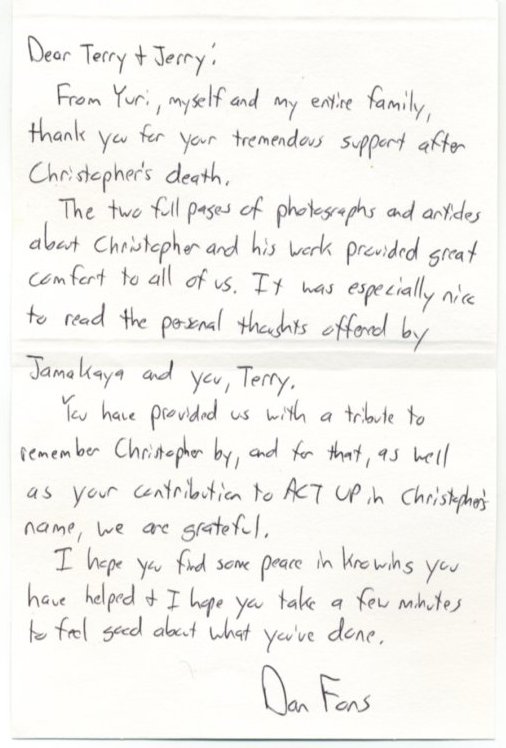 Dear Terry & Jerry:
From Yuri, myself and my entire family,
thank you for your tremendous support after
Christopher's death.
The two full pages of photographs and articles
about Christopher and his work provided great
comfort to all of us. It was especially nice
to read the personal thoughts offered by
Jamakaya and you, Terry.
You have provided us with a tribute to
remember Christopher by, and for that, as well
as your contribution to ACT UP in Christopher's
name, we are grateful.
I hope you find some peace in knowing you
have helped & I hope you take a few minutes
to feel good about what you've done.
Dan Fons